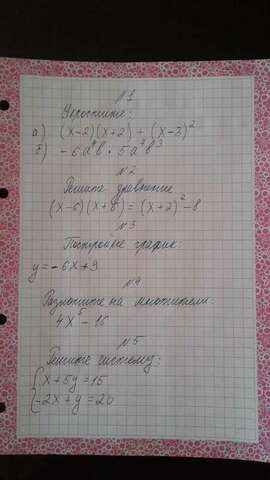 №1
Упростите:
а) (x-2)(x+2) + (x-3)²
б) -6a⁴b · 5a⁷b³
№2
Решите уравнение
(x-6)(x+8) = (x+2)²-8
№3
Постройте график:
y=-6x+9
№4
Разложите на множители:
4x⁵-16
№5
Решите систему:
{x+5y=15
{-2x+y=20